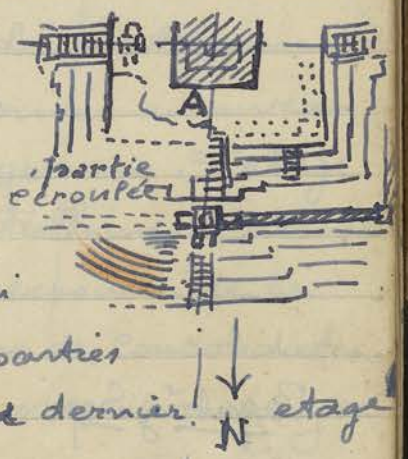 A
partie
écroulée
parties
dernier. etage
N